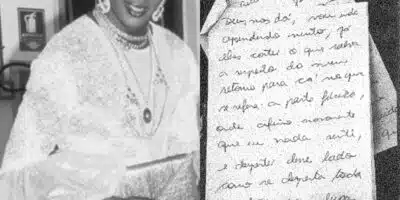 Deus nos dá, vou indo
aprendendo muito, já
lhes contei o que sabia
a respeito do meu
retorno para cá no que
se refere a parte física,
onde afirmo novamente
que eu nada senti,
e despertei deste lado
como se desperta toda